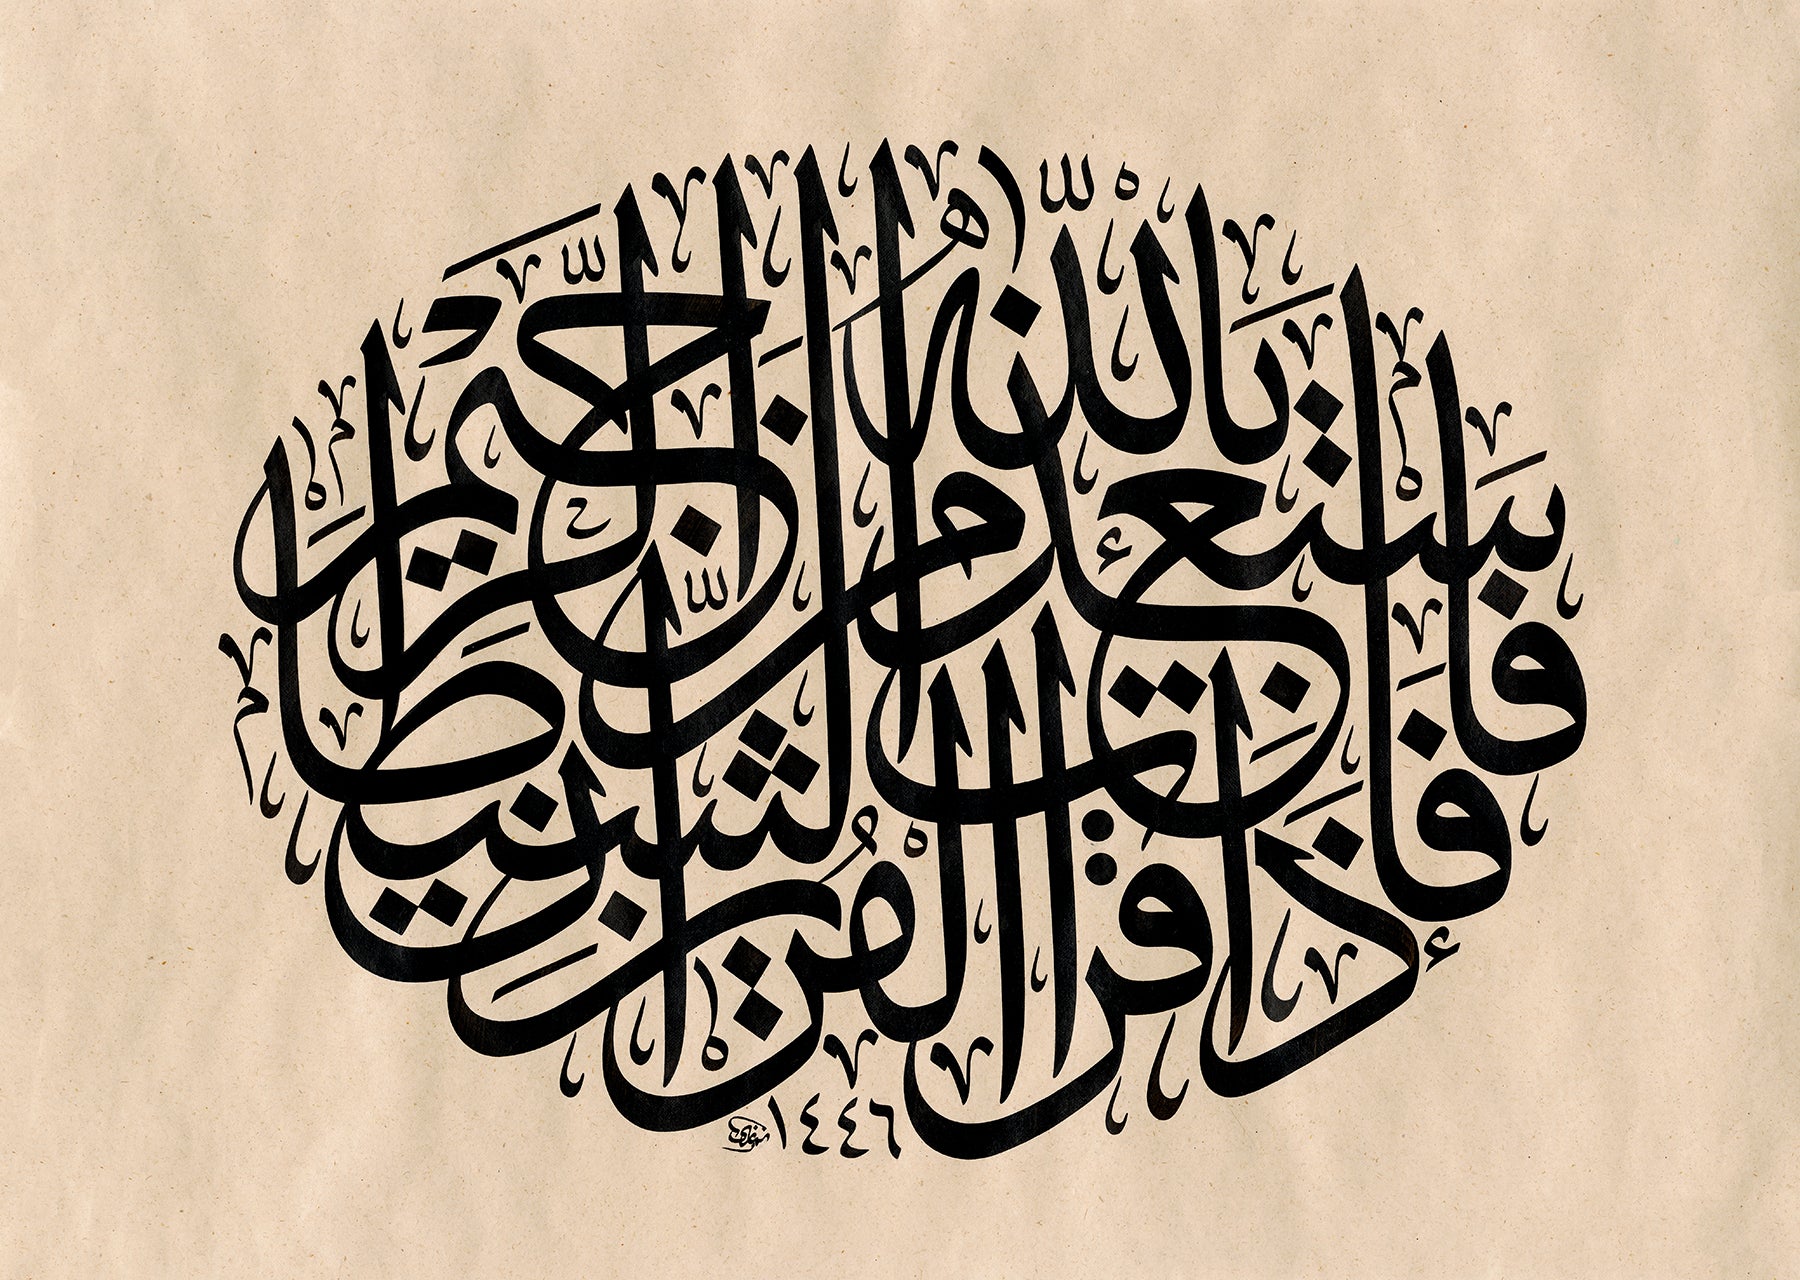 فَإِذَا قَرَأْتَ الْقُرْآنَ فَاسْتَعِذْ بِاللَّهِ مِنَ الشَّيْطَانِ الرَّجِيمِ
١٤٤٦